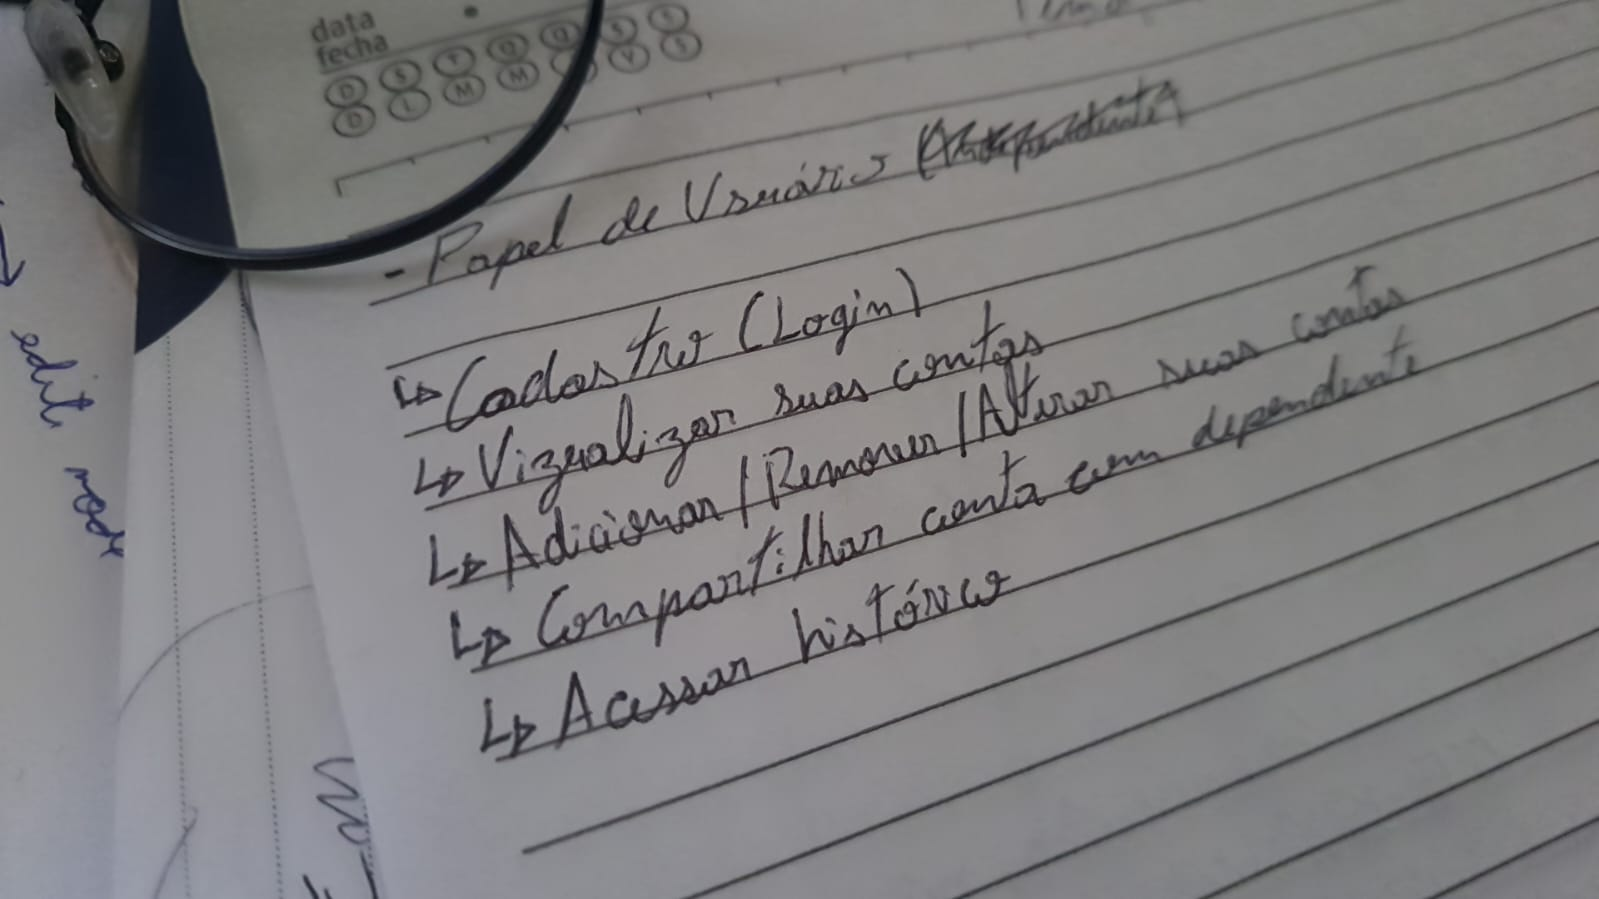 data
fecha
D S T Q Q S S
D L M M V S
- Papel de Usuário
↳ Cadastro (Login)
↳ Vizualizar suas contas
↳ Adicionar/Remover/Alterar suas contas
↳ Compartilhar conta com dependente
↳ Acessar histórico
→ edit node